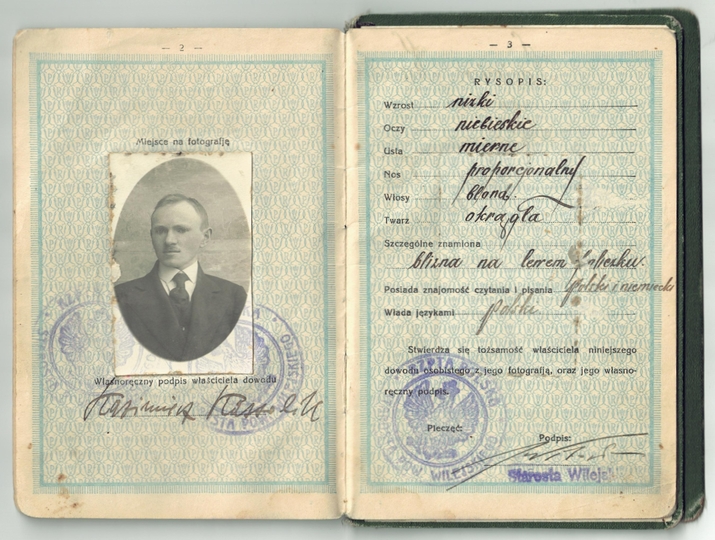 — 2 —
Miejsce na fotografję
Własnoręczny podpis właściciela dowodu
Kazimierz
— 3 —
RYSOPIS:
Wzrost nizki
Oczy niebieskie
Usta mierne
Nos proporcjonalny
Włosy blond.
Twarz okrągła
Szczególne znamiona
blizna na lewem policzku.
Posiada znajomość czytania i pisania polski i niemiecki
Włada językami polski
Stwierdza się tożsamość właściciela niniejszego
dowodu osobistego z jego fotografją, oraz jego własno-
ręczny podpis.
Pieczęć:
Podpis:
POW. WILEJSKIEGO
Starosta Wilejski